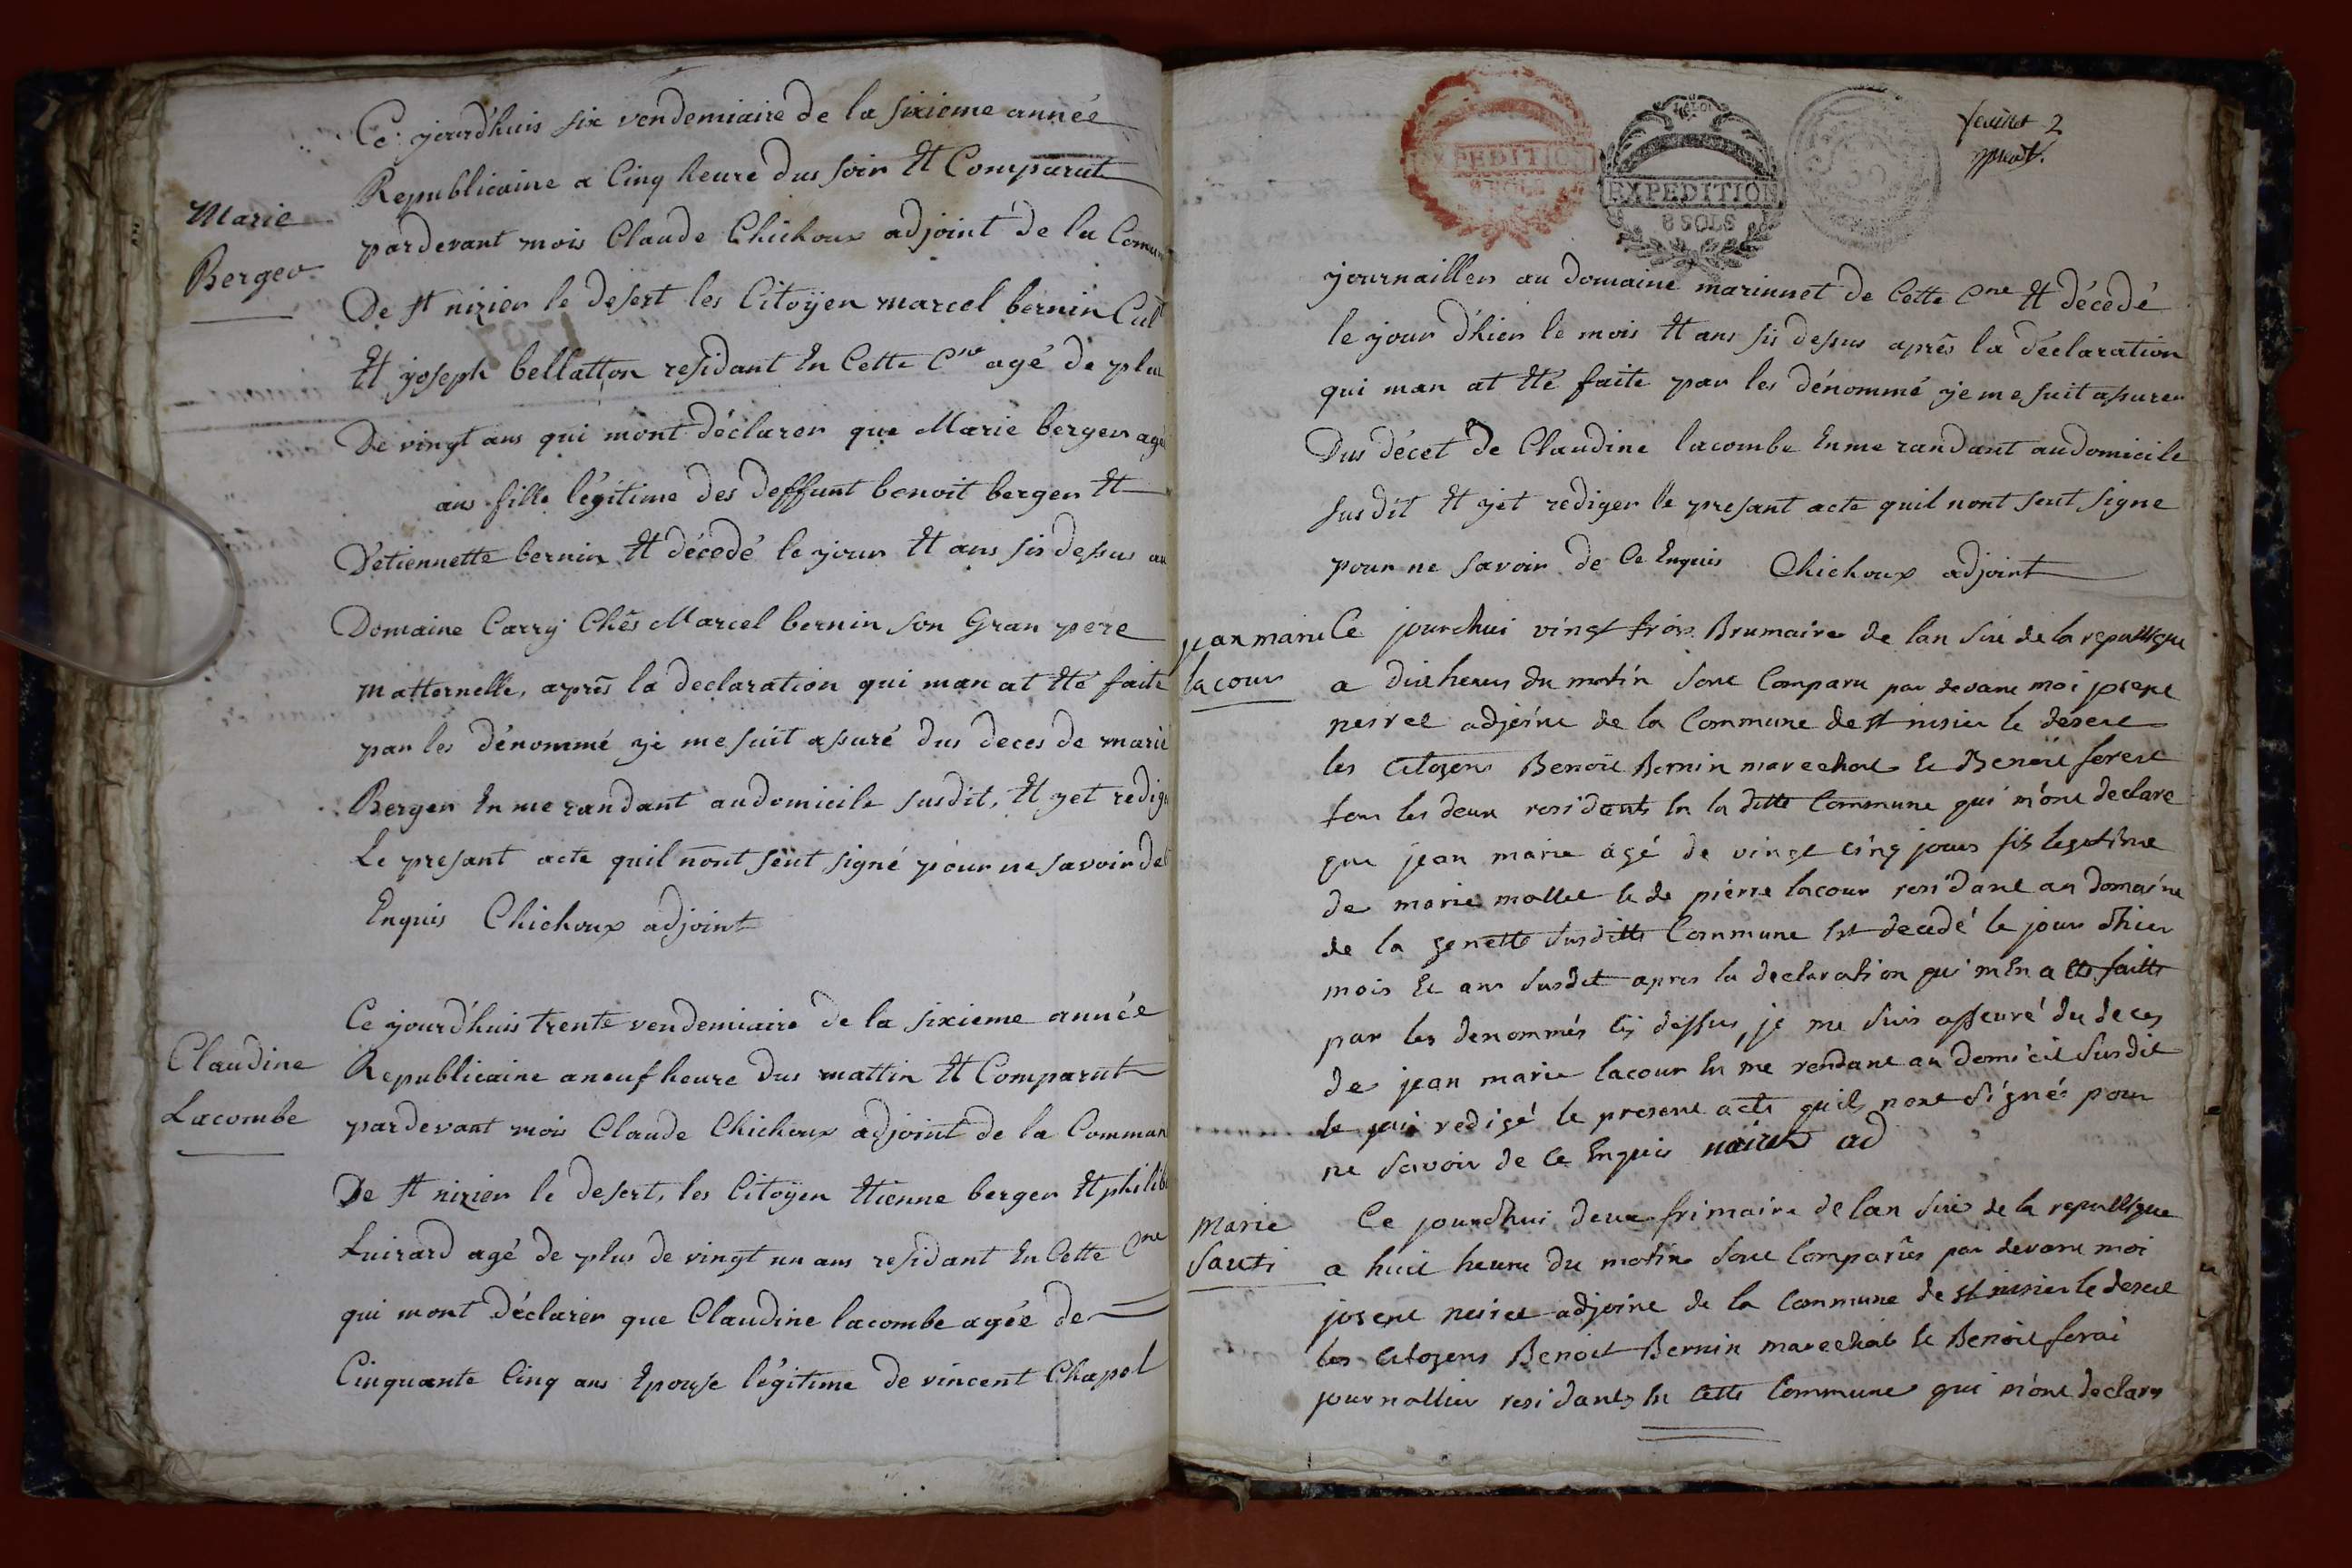 Ce jourd'huis six vendemiaire de la sixieme année
Republicaine a Cinq heure dus soir Et Comparut
Marie
Berger
pardevant mois Claude Chichoux adjoint de la Comu
De st nizier le desert les Citoÿen marcel bernin Cult
Et joseph bellatton residant En Cette Cne agé de plu
De vingt ans qui mont déclarer que Marie berger agé
ans fille légitime des deffunt benoit berger Et
D'etiennette bernin Et décedé le jour Et ans sis dessus au
Domaine Carry Chés Marcel bernin son Gran pere
matternelle, aprês la declaration qui man at Eté faite
par les dénommé je me suit asuré dus deces de marie
Berger En me randant au domicile susdit, Et jet redige
Le presant acte quil nont seut signé pour ne savoir de
Enquis Chichoux adjoint
Ce jourd'huis trente vendemiaire de la sixieme année
Claudine
Lacombe
Republicaine a neuf heure dus mattin Et Comparut
pardevant mois Claude Chichoux adjoint de la Commun
De st nizier le desert, les Citoÿen Etienne berger Et philib
Luizard agé de plus de vingt un ans residant En Cette Cne
qui mont déclarer que Claudine lacombe agée de
Cinquante Cinq ans Epouse légitime de vincent Chapel
EXPEDITION
8 SOLS
EXPEDITION
8 SOLS
feuillet 2
journaillier au domaine marinnet de Cette Cne Et décedé
le jour d'hier le mois Et ans sis dessus aprês la déclaration
qui man at Eté faite par les dénommé je me suit asurer
Dus décet de Claudine lacombe En me randant au domicile
susdit Et jet rediger le presant acte quil nont seut signe
pour ne savoir de Ce Enquis Chichoux adjoint
jean marie
lacour
Ce jourdhui vingt trois Brumaire de lan sixe de la republique
a dixe heures du matin sont Comparu par devant moi
adjoint de la Commune de st nisier le desert
les Citoyens Benoit Bernin marechal Et Benoit forest
tous les deux residants En la ditte Commune qui m'ont declaré
que jean marie agé de vingt cinq jours fils legitime
de marie mollet Et de pierre lacour residant au Domaine
de la genette susditte Commune Est decedé le jour d'hier
mois Et ans susdit apres la declaration qui mEn a Eté faitte
par les denommés cy dessus, je me suis asseuré du deces
de jean marie lacour En me rendant au domicil susdit
Et jai redigé le present acte quils nont signé pour
ne savoir de ce Enquis ad
Marie
Ce jourdhui deux frimaire de lan sixe de la republique
a huit heure du matin sont Comparûs par devant moi
adjoint de la Commune de st nisier le desert
les Citoyens Benoit Bernin marechal Et Benoit forai
journallier residants En Cette Commune qui m'ont declaré